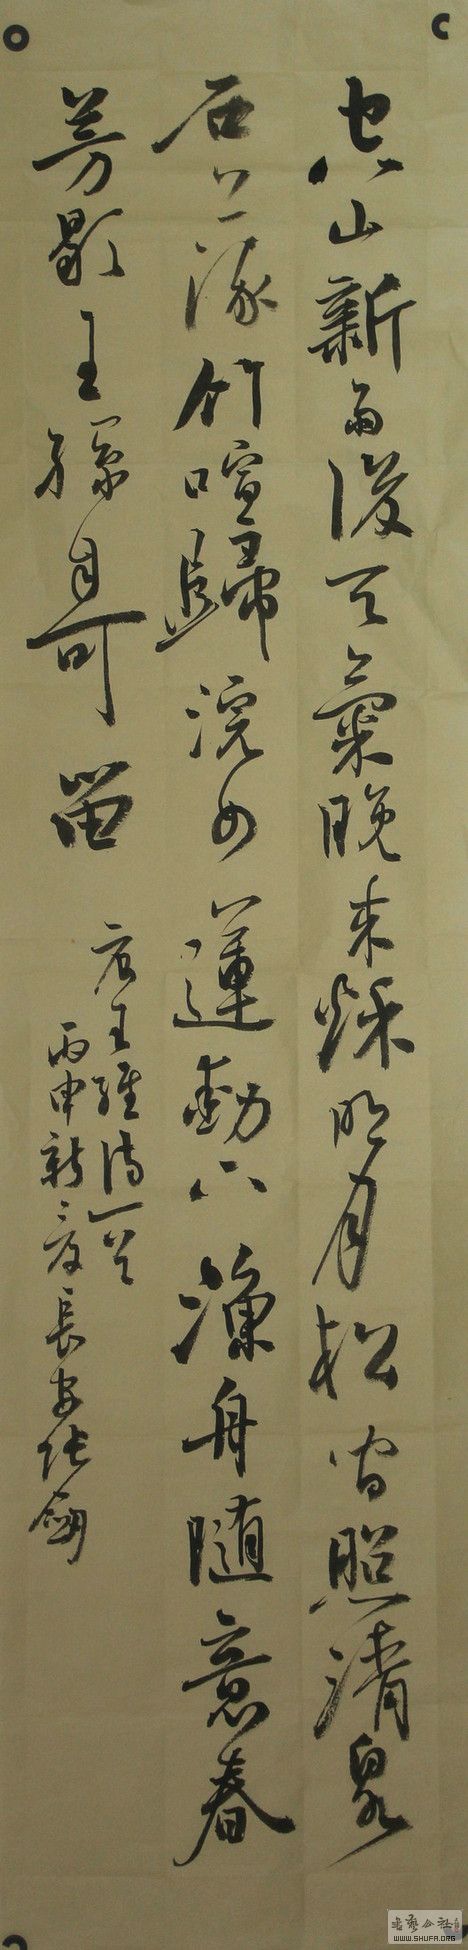 空山新雨後天氣晚來秌明月松間照清泉
石上流竹喧歸浣女蓮動下漁舟隨意春
芳歇王孫自可留
唐王維詩一首
丙申新夏長安張劍
书艺公社
WWW.SHUFA.ORG